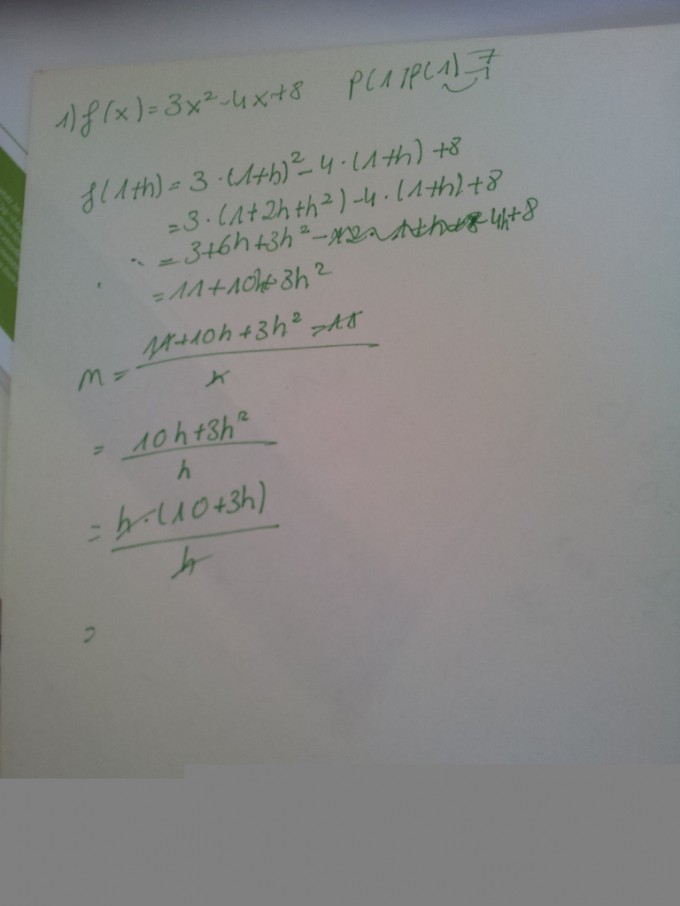 1) f(x) = 3x² - 4x + 8 P(1|P(1) 7
f(1+h) = 3 · (1+h)² - 4 · (1+h) + 8
= 3 · (1+2h+h²) - 4 · (1+h) + 8
= 3+6h+3h² - 4h+8
= 11 + 10h + 3h²
m = 11+10h+3h² - 11 / h
= 10h+3h² / h
= h · (10+3h) / h
=